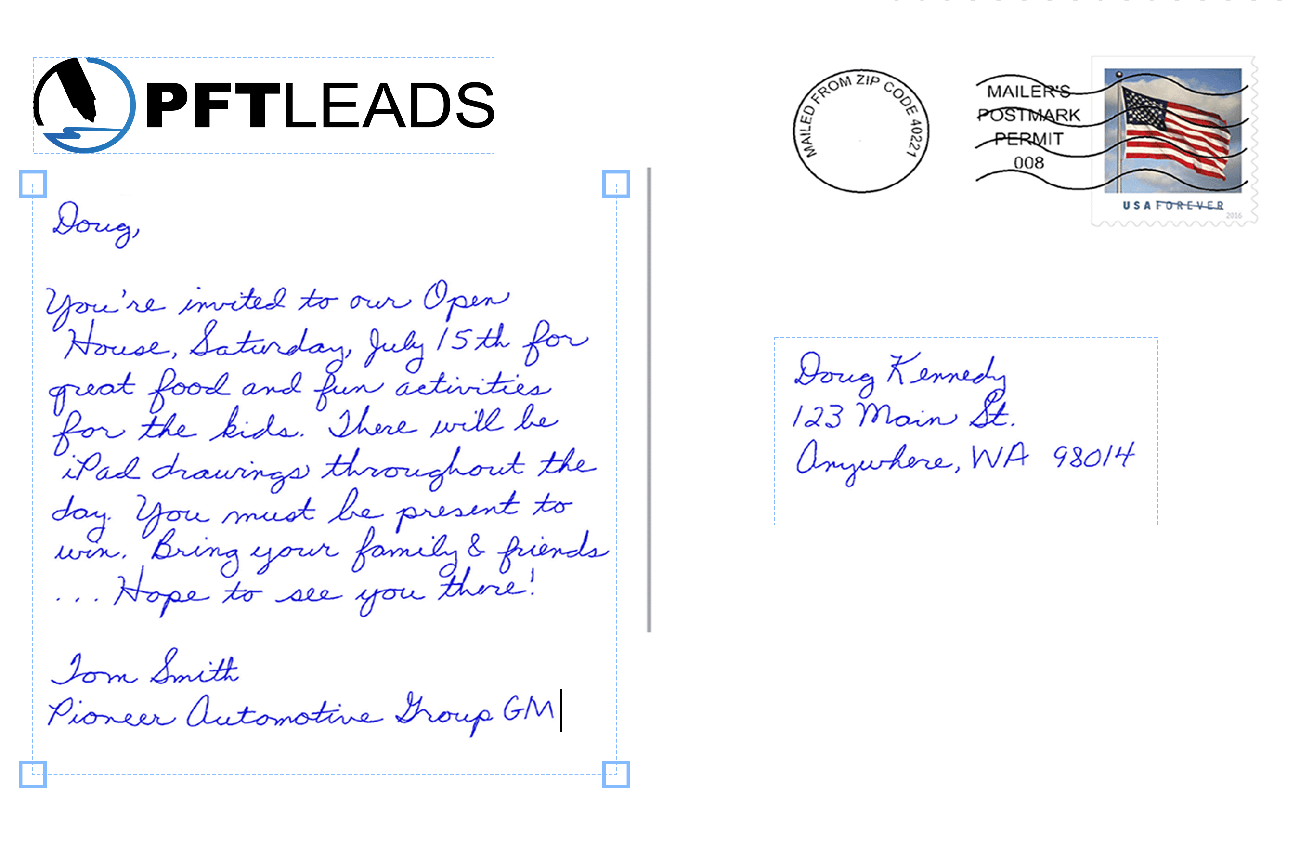 PFTLEADS
Doug,
You're invited to our Open
House, Saturday, July 15th for
great food and fun activities
for the kids. There will be
iPad drawings throughout the
day. You must be present to
win. Bring your family & friends
... Hope to see you there!
Tom Smith
Pioneer Automotive Group GM
MAILED FROM ZIP CODE 40221
MAILER'S
POSTMARK
PERMIT
008
USA FOREVER
2016
Doug Kennedy
123 Main St.
Anywhere, WA 98014